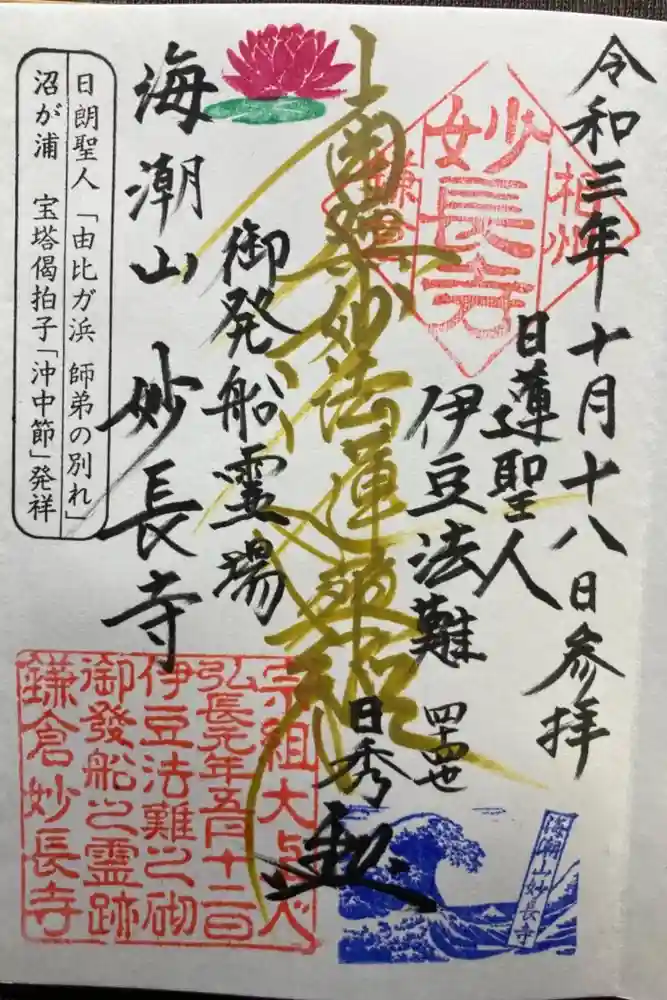 令和三年十月十八日参拝
相州
妙長寺
鎌倉
日蓮聖人
伊豆法難
四十四世
日秀
南無妙法蓮華経
御発船霊場
海潮山 妙長寺
日朗聖人「由比ガ浜 師弟の別れ」
沼が浦 宝塔偈拍子「沖中節」発祥
宗祖大
弘長元年五月十二日
伊豆法難之砌
御發船之霊跡
鎌倉妙長寺
海潮山妙長寺